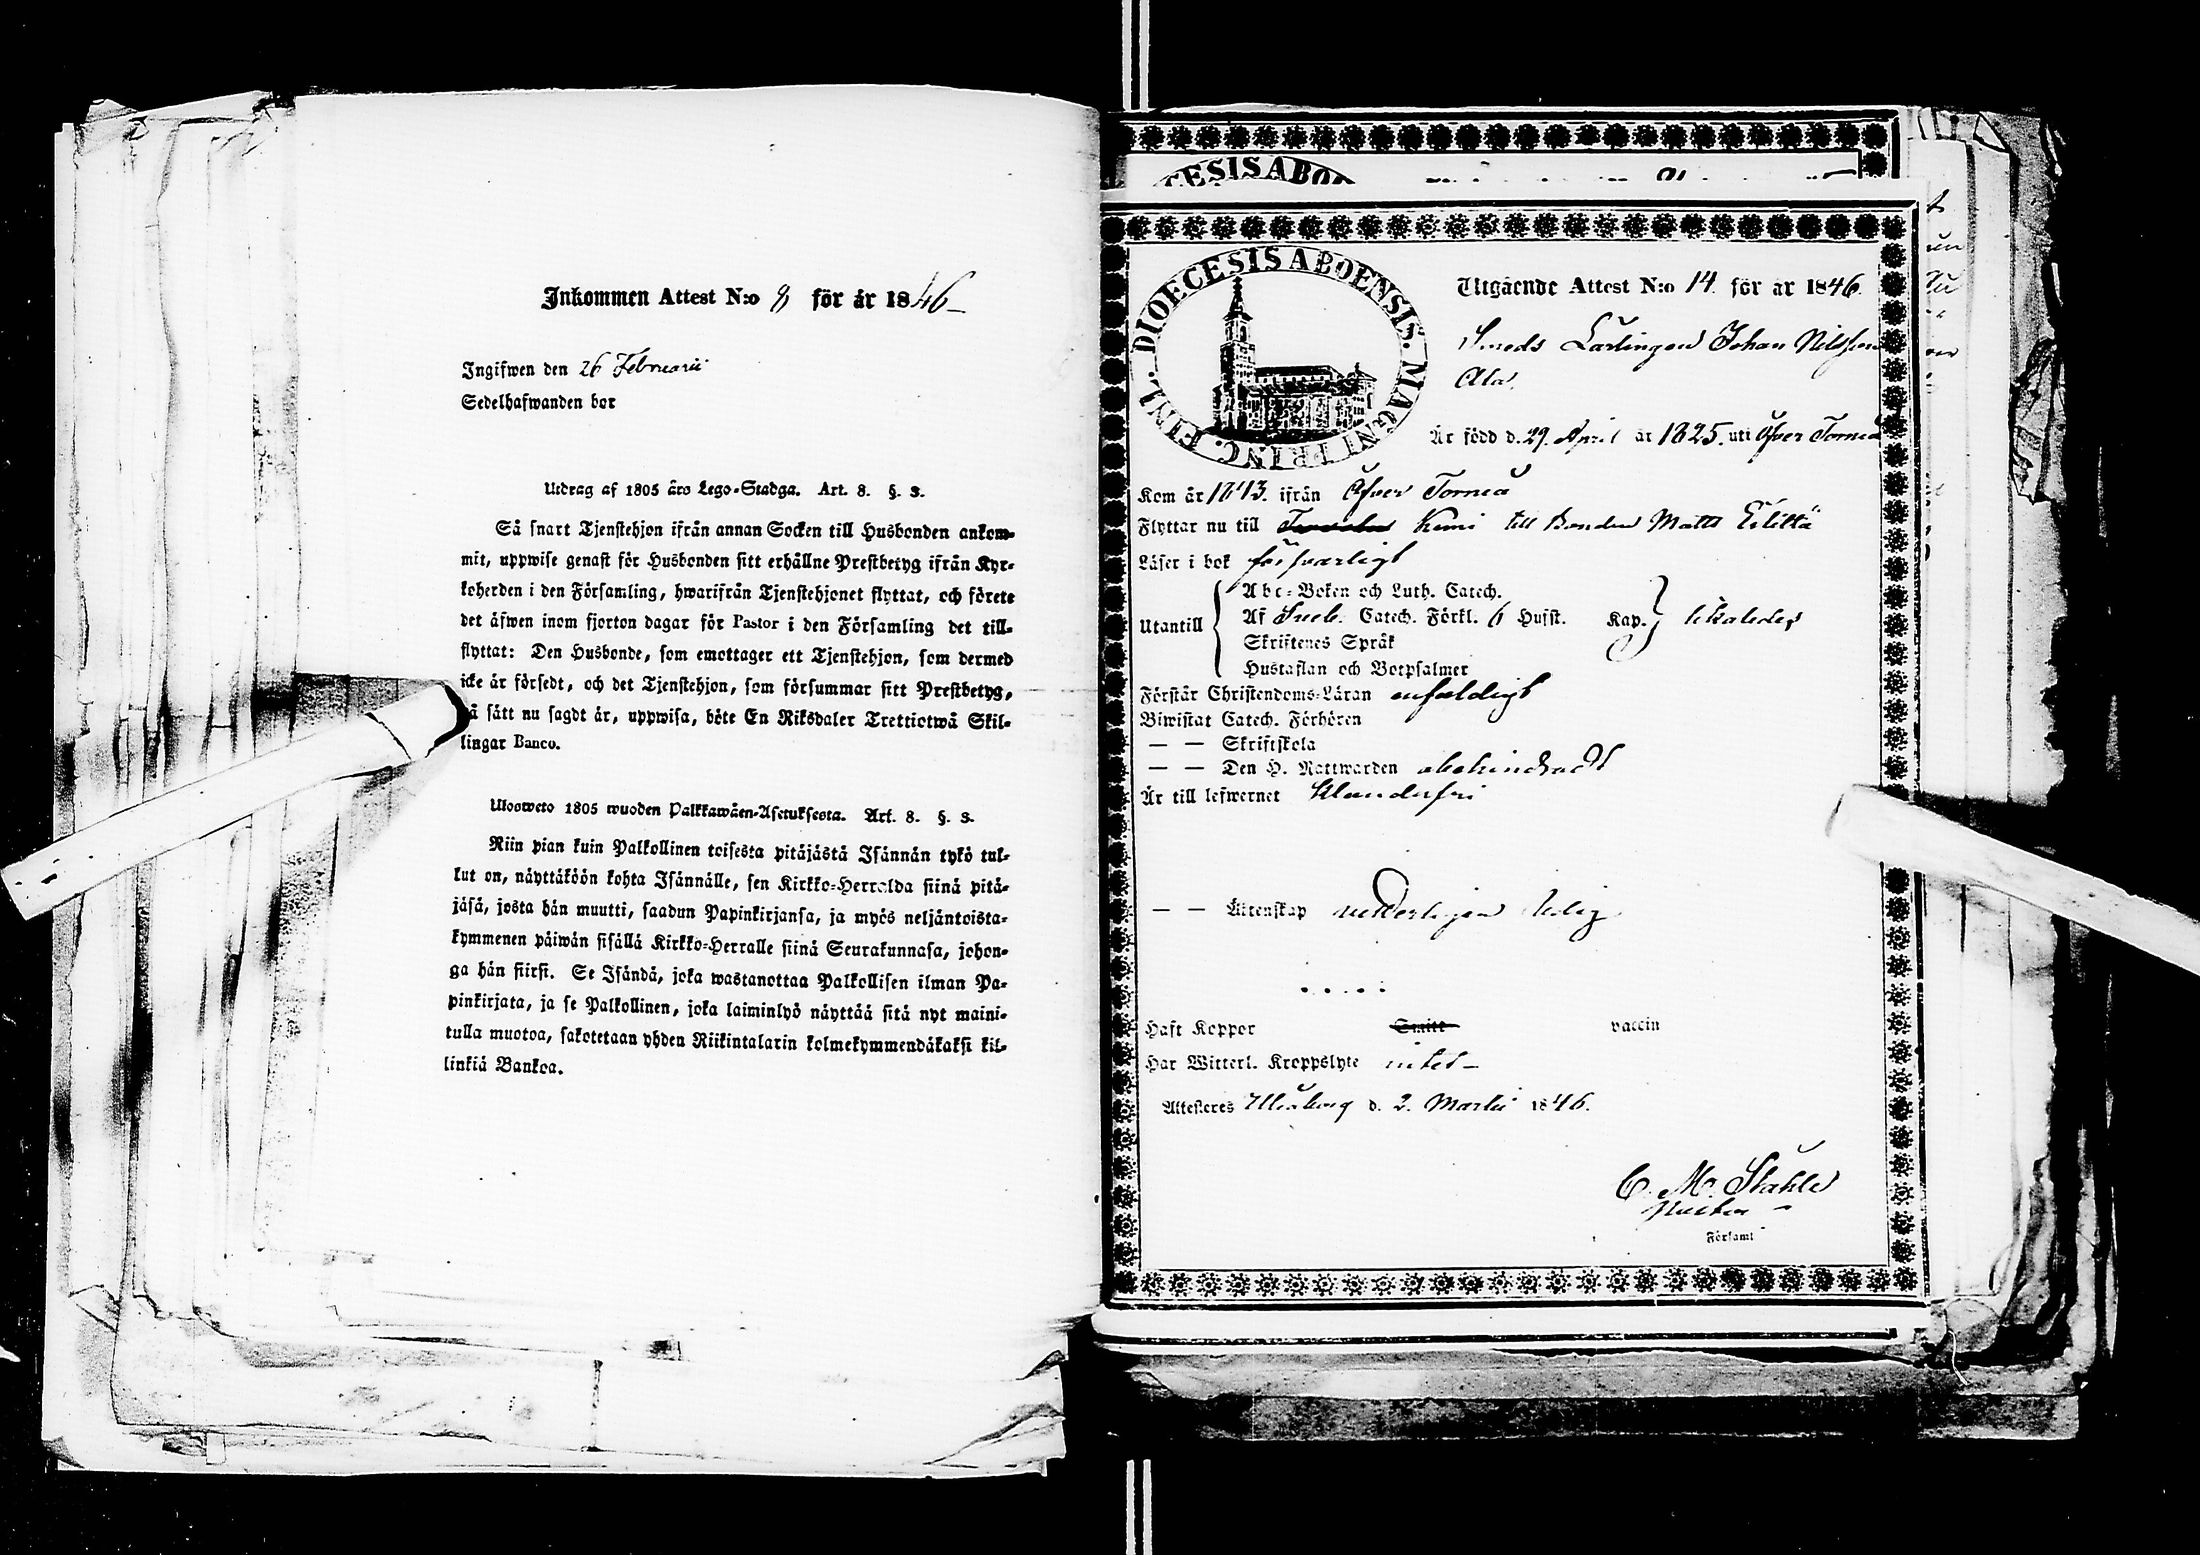 Inkommen Attest N:o 8 för år 1846
Ingifwen den 26 Februarii
Sedelhafwanden bor
Utdrag af 1805 års Lego-Stadga. Art. 8. §. 3.
Så snart Tjenstehjon ifrån annan Socken till Husbonden ankom-
mit, uppwise genast för Husbonden sitt erhållne Prestbetyg ifrån Kyr-
koherden i den Församling, hwarifrån Tjenstehjonet flyttat, och förete
det äfwen inom fjorton dagar för Pastor i den Församling det till-
flyttat: Den Husbonde, som emottager ett Tjenstehjon, som dermed
icke är försedt, och det Tjenstehjon, som försummar sitt Prestbetyg,
å sätt nu sagdt är, uppwisa, böte En Riksdaler Trettiotwå Skil-
lingar Banco.
Ulosweto 1805 wuoden Palkkawäen-Asetuksesta. Art. 8. §. 3.
Niin pian kuin Palkollinen toisesta pitäjästä Isännän tykö tul-
lut on, näyttäköön kohta Isännälle, sen Kirkko-Herralda siinä pitä-
jäsä, josta hän muutti, saadun Papinkirjansa, ja myös neljäntoista-
kymmenen päiwän sisällä Kirkko-Herralle siinä Seurakunnasa, johon-
ga hän siirsi. Se Isändä, joka wastanottaa Palkollisen ilman Pa-
pinkirjata, ja se Palkollinen, joka laiminlyö näyttää sitä nyt maini-
tulla muotoa, sakotetaan yhden Riikintalarin kolmekymmendäkaksi kil-
linkiä Bankoa.
ESIS ABO
DIOECESIS ABOENSIS. MAGNI PRINC. FINL.
Utgående Attest N:o 14. för år 1846.
Smeds Lärlingen Johan Nilsson
Ala.
Är född d. 29. April år 1825. uti Öfver Torneå
Kom år 1843. ifrån Öfver Torneå
Flyttar nu till Kemi till Bonden Matts
Läser i bok försvarligt
Utantill
Abc-Boken och Luth. Catech.
Af Sveb. Catech. Förkl. 6 Hufst. Kap. likaledes
Skriftenes Språk
Hustaflan och Botpsalmer
Förstår Christendoms-Läran enfaldigt
Biwistat Catech. Förhören
— — Skriftskola
— — Den H. Nattwarden obehindradt
Är till lefwernet klanderfri
— — Äktenskap vetterligen ledig
Haft Koppor Smitt vaccin
Har Witterl. Kroppslyte intet
Attesteres Uleåborg d. 2. Martii 1846.
C. M. Ståhle
Församl